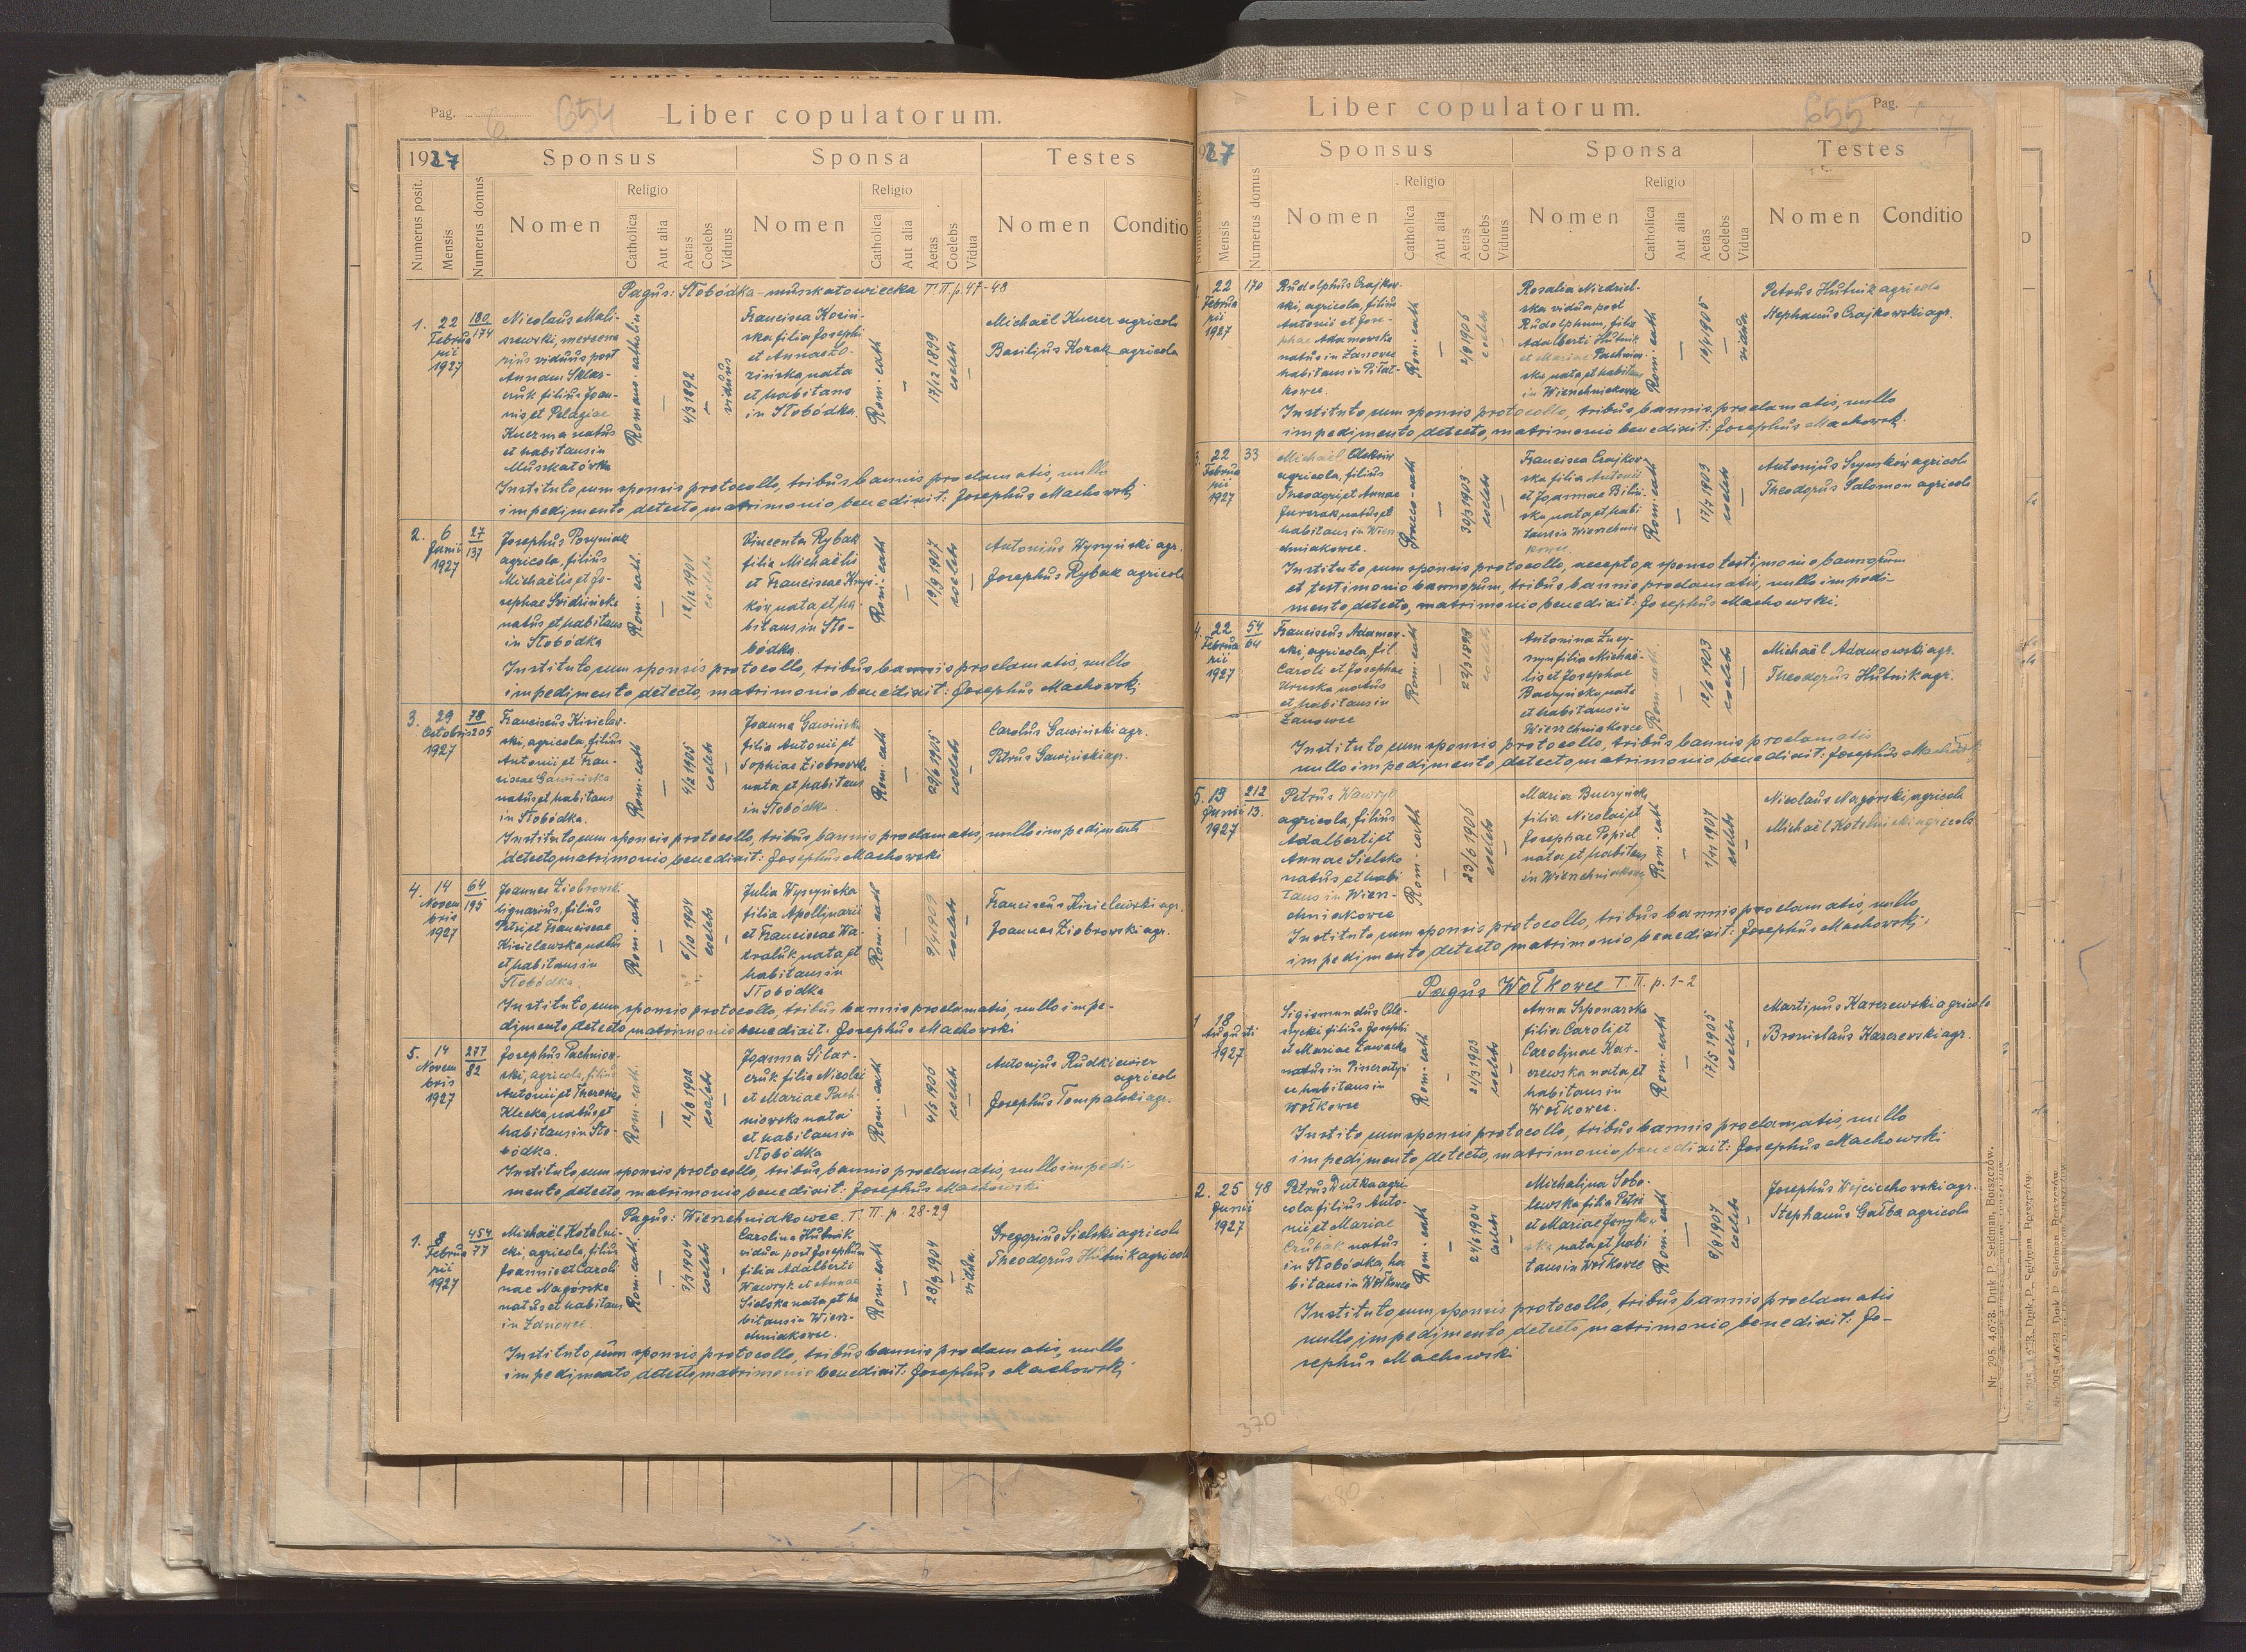 Pag. 6 654 Liber copulatorum.
1927 Sponsus Sponsa Testes
Numerus posit. Mensis Numerus domus Nomen Religio Catholica Aut alia Aetas Coelebs Viduus Nomen Religio Catholica Aut alia Aetas Coelebs Vidua Nomen Conditio
Pagus: Słobódka-muszkatowiecka T. II. p. 47-48
1. 22 Februarii 1927
180/174
Nicolaus Mali-
szewski, mercena
rius viduus post
Annam Sklar-
czuk filius Joan-
nis et Pelagiae
Kuczma natus
et habitans in
Muszkatówka
Romano-catholica
—
4/3 1892
—
viduus
Francisca Kozin-
ska filia Josephi
et Annae
nata
et habitans
in Słobódka.
Rom. cath
—
17/12 1899
coelebs
—
Michaël Kuczer agricola
Basilius Kozak agricola
Instituto cum sponsis protocollo, tribus bannis proclamatis, nullo
impedimento detecto, matrimonio benedixit: Josephus Machowski
2. 6 Junii 1927
27/137
Josephus Pozyniak
agricola, filius
Michaëlis et Jo-
sephae
natus et habitans
in Słobódka
Rom. cath.
—
12/12 1901
coelebs
Vincenta Rybak
filia Michaëlis
et Franciscae Krysi-
ków nata et ha-
bitans in Sło-
bódka.
Rom. cath
—
19/9 1907
coelebs
—
Antonius Wyszyński agr.
Josephus Rybak agricola
Instituto cum sponsis protocollo, tribus bannis proclamatis, nullo
impedimento detecto, matrimonio benedixit: Josephus Machowski
3. 29 Octobris 1927
78/205
Franciscus Kisielew-
ski, agricola, filius
Antonii et Fran-
ciscae Gawińska
natus et habitans
in Słobódka.
Rom. cath
—
4/2 1905
coelebs
—
Joanna Gawińska
filia Antonii et
Sophiae Ziobrowska
nata et habitans
in Słobódka.
Rom. cath
—
29/6 1905
coelebs
—
Carolus Gawiński agr.
Petrus Gawiński agr.
Instituto cum sponsis protocollo, tribus bannis proclamatis, nullo impedimento
detecto matrimonio benedixit: Josephus Machowski
4. 14 Novembris 1927
64/195
Joannes Ziobrowski
lignarius, filius
Petri et Franciscae
Kisielewska, natus
et habitans in
Słobódka.
Rom. cath
—
6/10 1904
coelebs
—
Julia Wyszyńska
filia Apollinarii
et Franciscae Wa-
traluk nata et
habitans in
Słobódka
Rom. cath
—
9/4 1909
coelebs
—
Franciscus Kisielewski agr.
Joannes Ziobrowski agr.
Instituto cum sponsis protocollo, tribus bannis proclamatis, nullo impe-
dimento detecto, matrimonio benedixit: Josephus Machowski
5. 14 Novembris 1927
277/82
Josephus Pachniow-
ski, agricola, filius
Antonii et Theresiae
Klecka, natus et
habitans in Sło-
bódka.
Rom. cath.
—
12/8 1902
coelebs
—
Joanna Sitar-
czuk filia Nicolai
et Mariae Pach-
niowska nata
et habitans in
Słobódka
Rom. cath
—
4/5 1906
coelebs
—
Antonius Rudkiewicz
agricola
Josephus Tompalski agr.
Instituto cum sponsis protocollo, tribus bannis proclamatis, nullo impedi-
mento detecto, matrimonio benedixit: Josephus Machowski
Pagus: Wierzchniakowce. T. II. p. 28-29
1. 8 Februarii 1927
454/77
Michaël Kotelni-
cki, agricola, filius
Joannis et Caroli
nae Nagórska
natus et habitans
in Łanowce.
Rom. cath.
—
7/3 1904
coelebs
—
Carolina Hutnik
vidua post Josephum
filia Adalberti
Wawryk et Annae
Sielska nata et ha
bitans in Wierz-
chniakowce.
Rom. cath
—
28/3 1904
—
vidua.
Gregorius Sielski agricola
Theodorus Hutnik agricola
Instituto cum sponsis protocollo, tribus bannis proclamatis, nullo
impedimento detecto, matrimonio benedixit: Josephus Machowski
Liber copulatorum. 655 Pag. 7
1927 Sponsus Sponsa Testes
Mensis Numerus domus Nomen Religio Catholica Aut alia Aetas Coelebs Viduus Nomen Religio Catholica Aut alia Aetas Coelebs Vidua Nomen Conditio
22 Februarii 1927
170
Rudolphus Czajkow-
ski, agricola, filius
Antonii et Jose-
phae Adamowska
natus in Łanowce
habitans in Piłat-
kowce.
Rom. cath
—
2/8 1906
coelebs
—
Rosalia Niedziel-
ska vidua post
Rudolphum, filia
Adalberti Hutnik
et Mariae Pachniow-
ska nata et habitans
in Wierzchniakowce
Rom. cath
—
16/4 1905
—
vidua
Petrus Hutnik agricola
Stephanus Czajkowski agr.
Instituto cum sponsis protocollo, tribus bannis proclamatis, nullo
impedimento detecto, matrimonio benedixit: Josephus Machowski.
3. 22 Februarii 1927
33
Michaël Oleksiw
agricola, filius
Theodori et Annae
Jurczak natus et
habitans in Wierz
chniakowce.
Graeco-cath
—
30/3 1903
coelebs
—
Francisca Czajkow-
ska filia Antonii
et Joannae Biliń-
ska, nata et habi
tans in Wierzchnia
kowce.
Rom. cath
—
17/7 1903
coelebs
—
Antonius Szymków agricola
Theodorus Salamon agricola
Instituto cum sponsis protocollo, accepto a sponso testimonio bannorum
et testimonio bannorum, tribus bannis proclamatis, nullo impedi-
mento detecto, matrimonio benedixit: Josephus Machowski.
4. 22 Februarii 1927
54/64
Franciscus Adamow-
ski, agricola, fil.
Caroli et Josephae
Uruska natus
et habitans in
Łanowce
Rom. cath
—
23/3 1898
coelebs
Antonina
filia Michaë-
lis et Josephae
Baczyńska, nata
et habitans in
Wierzchniakowce
Rom. cath.
—
12/6 1903
coelebs
—
Michaël Adamowski agr.
Theodorus Hutnik agr.
Instituto cum sponsis protocollo, tribus bannis proclamatis
nullo impedimento detecto matrimonio benedixit: Josephus Machowski
5. 13 Junii 1927
212/13.
Petrus Wawryk
agricola, filius
Adalberti et
Annae Sielska
natus et habi
tans in Wierz-
chniakowce
Rom. cath
—
23/6 1906
coelebs
—
Maria Buczyńska
filia Nicolai et
Josephae Popiel
nata et habitans
in Wierzchniakowce
Rom. cath
—
1/11 1907
coelebs
—
Nicolaus Nagórski agricola
Michaël Kotelnicki agricola
Instituto cum sponsis protocollo, tribus bannis proclamatis, nullo
impedimento detecto matrimonio benedixit: Josephus Machowski.
Pagus Wołkowce T. II. p. 1-2
1 18 Augusti 1927
Sigismundus Ole-
stycki filius Josephi
et Mariae Zawacka
natus in
habitans in
Wołkowce
Rom. cath
—
21/3 1903
coelebs
—
Anna Szponarska
filia Caroli et
Carolinae Kar-
czewska nata et
habitans in
Wołkowce.
Rom. cath
—
17/5 1905
coelebs
-
Martinus Karczewski agricola
Bronislaus Karczewski agr.
Instito cum sponsis protocollo, tribus bannis proclamatis, nullo
impedimento detecto, matrimonio benedixit: Josephus Machowski
2. 25 Junii 1927
48
Petrus Dutka agri-
cola filius Anto-
nii et Mariae
Czubak natus
in Słobódka, ha
bitans in Wołkowce
Rom. cath
—
24/6 1904
coelebs
—
Michalina Sobo-
lewska filia Petri
et Mariae
nata et habi
tans in Wołkowce
Rom. cath
—
8/8 1907
coelebs
—
Josephus Wojciechowski agr.
Stephanus Gałba agricola
Instituto cum sponsis protocollo, tribus bannis proclamatis
nullo impedimento detecto matrimonio benedixit: Jo-
sephus Machowski
370
380
Nr. 205. Druk P. Seidman, Borszczów.